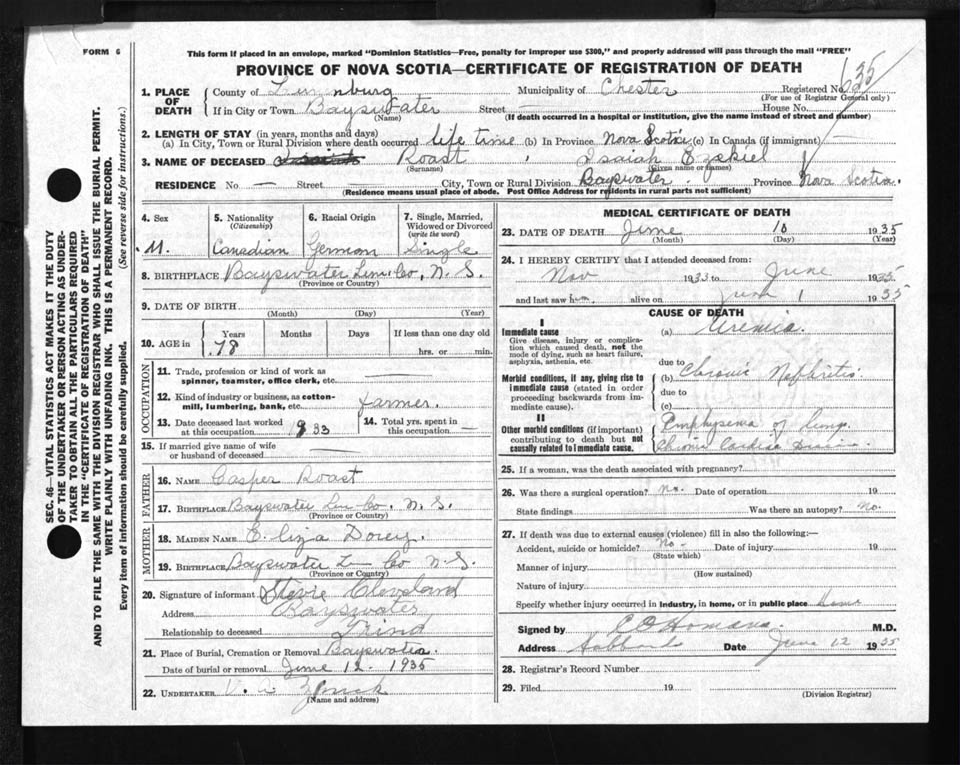 FORM 6
This form if placed in an envelope, marked "Dominion Statistics—Free, penalty for improper use $300," and properly addressed will pass through the mail "FREE"
PROVINCE OF NOVA SCOTIA—CERTIFICATE OF REGISTRATION OF DEATH
SEC. 46—VITAL STATISTICS ACT MAKES IT THE DUTY
OF THE UNDERTAKER OR PERSON ACTING AS UNDER-
TAKER TO OBTAIN ALL THE PARTICULARS REQUIRED
IN THE "CERTIFICATE OF REGISTRATION OF DEATH"
AND TO FILE THE SAME WITH THE DIVISION REGISTRAR WHO SHALL ISSUE THE BURIAL PERMIT.
WRITE PLAINLY WITH UNFADING INK. THIS IS A PERMANENT RECORD.
Every item of information should be carefully supplied. (See reverse side for instructions.)
1. PLACE OF DEATH County of Lunenburg Municipality of Chester Registered No. 635
(For use of Registrar General only)
If in City or Town Bayswater Street — House No.
(Name) (If death occurred in a hospital or institution, give the name instead of street and number)
2. LENGTH OF STAY (in years, months and days)
(a) In City, Town or Rural Division where death occurred life time (b) In Province Nova Scotia (c) In Canada (if immigrant)
3. NAME OF DECEASED Roast Isaiah Ezekiel
(Surname) (Given name or names)
RESIDENCE No. — Street City, Town or Rural Division Bayswater Province Nova Scotia.
(Residence means usual place of abode. Post Office Address for residents in rural parts not sufficient)
4. Sex M.
5. Nationality (Citizenship) Canadian
6. Racial Origin German
7. Single, Married, Widowed or Divorced (write the word) Single
8. BIRTHPLACE Bayswater Lun. Co. N. S.
(Province or Country)
9. DATE OF BIRTH
(Month) (Day) (Year)
10. AGE in Years 78 Months Days If less than one day old
hrs. or min.
OCCUPATION
11. Trade, profession or kind of work as spinner, teamster, office clerk, etc. —
12. Kind of industry or business, as cotton-mill, lumbering, bank, etc. farmer.
13. Date deceased last worked at this occupation 1933
14. Total yrs. spent in this occupation —
15. If married give name of wife or husband of deceased —
FATHER
16. NAME Casper Roast
17. BIRTHPLACE Bayswater Lun Co. N. S.
(Province or Country)
MOTHER
18. MAIDEN NAME Eliza Dorey.
19. BIRTHPLACE Bayswater Lun Co N. S.
(Province or Country)
20. Signature of informant Stevie Cleveland
Address Bayswater
Relationship to deceased Frind
21. Place of Burial, Cremation or Removal Bayswater.
Date of burial or removal June 12 - 1935
22. UNDERTAKER
(Name and address)
MEDICAL CERTIFICATE OF DEATH
23. DATE OF DEATH June 10 1935
(Month) (Day) (Year)
24. I HEREBY CERTIFY that I attended deceased from:
Nov 1933 to June 1935
and last saw him alive on June 1 1935
CAUSE OF DEATH
I
Immediate cause (a) Uremia.
Give disease, injury or complication which caused death, not the mode of dying, such as heart failure, asphyxia, asthenia, etc.
due to
Morbid conditions, if any, giving rise to immediate cause (stated in order proceeding backwards from immediate cause). (b) Chronic Nephritis
due to
(c)
II
Other morbid conditions (if important) contributing to death but not causally related to immediate cause. Emphysema of lung.
Chronic Cardiac Disease
25. If a woman, was the death associated with pregnancy?
26. Was there a surgical operation? No. Date of operation 19
State findings Was there an autopsy? No.
27. If death was due to external causes (violence) fill in also the following:—
Accident, suicide or homicide? No Date of injury 19
(State which)
Manner of injury
(How sustained)
Nature of injury
Specify whether injury occurred in industry, in home, or in public place
Signed by M.D.
Address Hubbards Date June 12 1935
28. Registrar's Record Number
29. Filed 19
(Division Registrar)